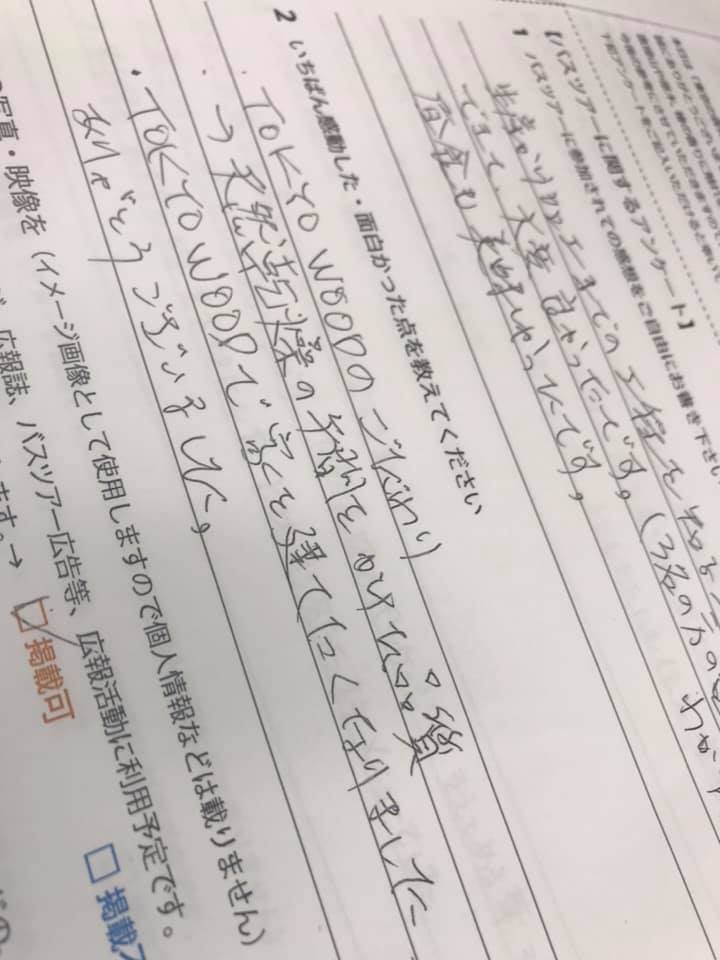 今後の参考にさせていただきますので
下記アンケートをご記入いただけると幸い
【バスツアーに関するアンケート】
1 バスツアーに参加されての感想をご自由にお書き下さい
工までの工程を知るこ
できて、大変良かったです。(3名の方の
わか
昼食も美味しかったです。
2 いちばん感動した・面白かった点を教えてください
・TOKYO WOODのこだわり
→天然乾燥の手間をかけた品質
・TOKYO WOODで家を建てたくなりました
ありがとうございました。
写真・映像を(イメージ画像として使用しますので個人情報などは載りません)
広報誌、バスツアー広告等、広報活動に利用予定です。
ます。→ □掲載可 □掲載